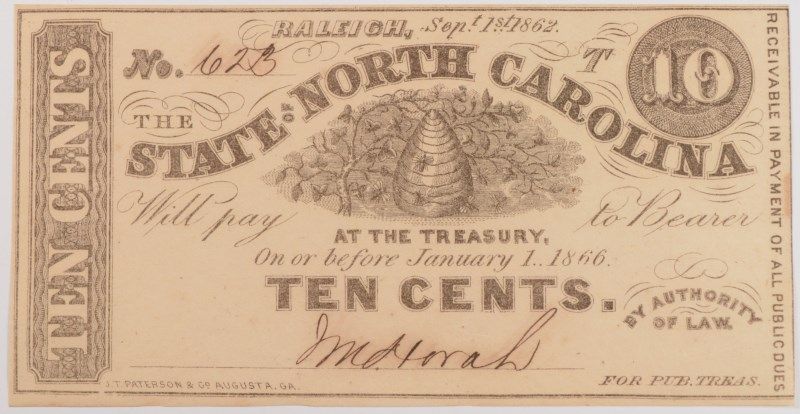 RALEIGH, Sept. 1st 1862.
No. 623
T
10
THE
STATE OF NORTH CAROLINA
Will pay to Bearer
AT THE TREASURY,
On or before January 1.. 1866.
TEN CENTS.
BY AUTHORITY
OF LAW.
FOR PUB. TREAS.
J.T. PATERSON & Co AUGUSTA, GA.
TEN CENTS
RECEIVABLE IN PAYMENT OF ALL PUBLIC DUES